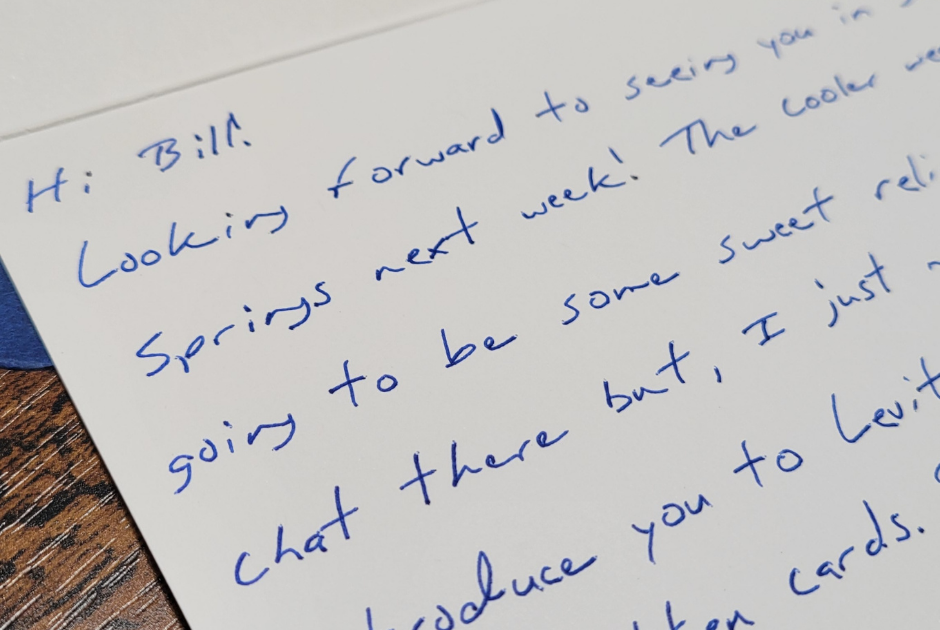 Hi Bill!
Looking forward to seeing you in
Springs next week! The cooler
going to be some sweet
chat there but, I just
you to
cards.